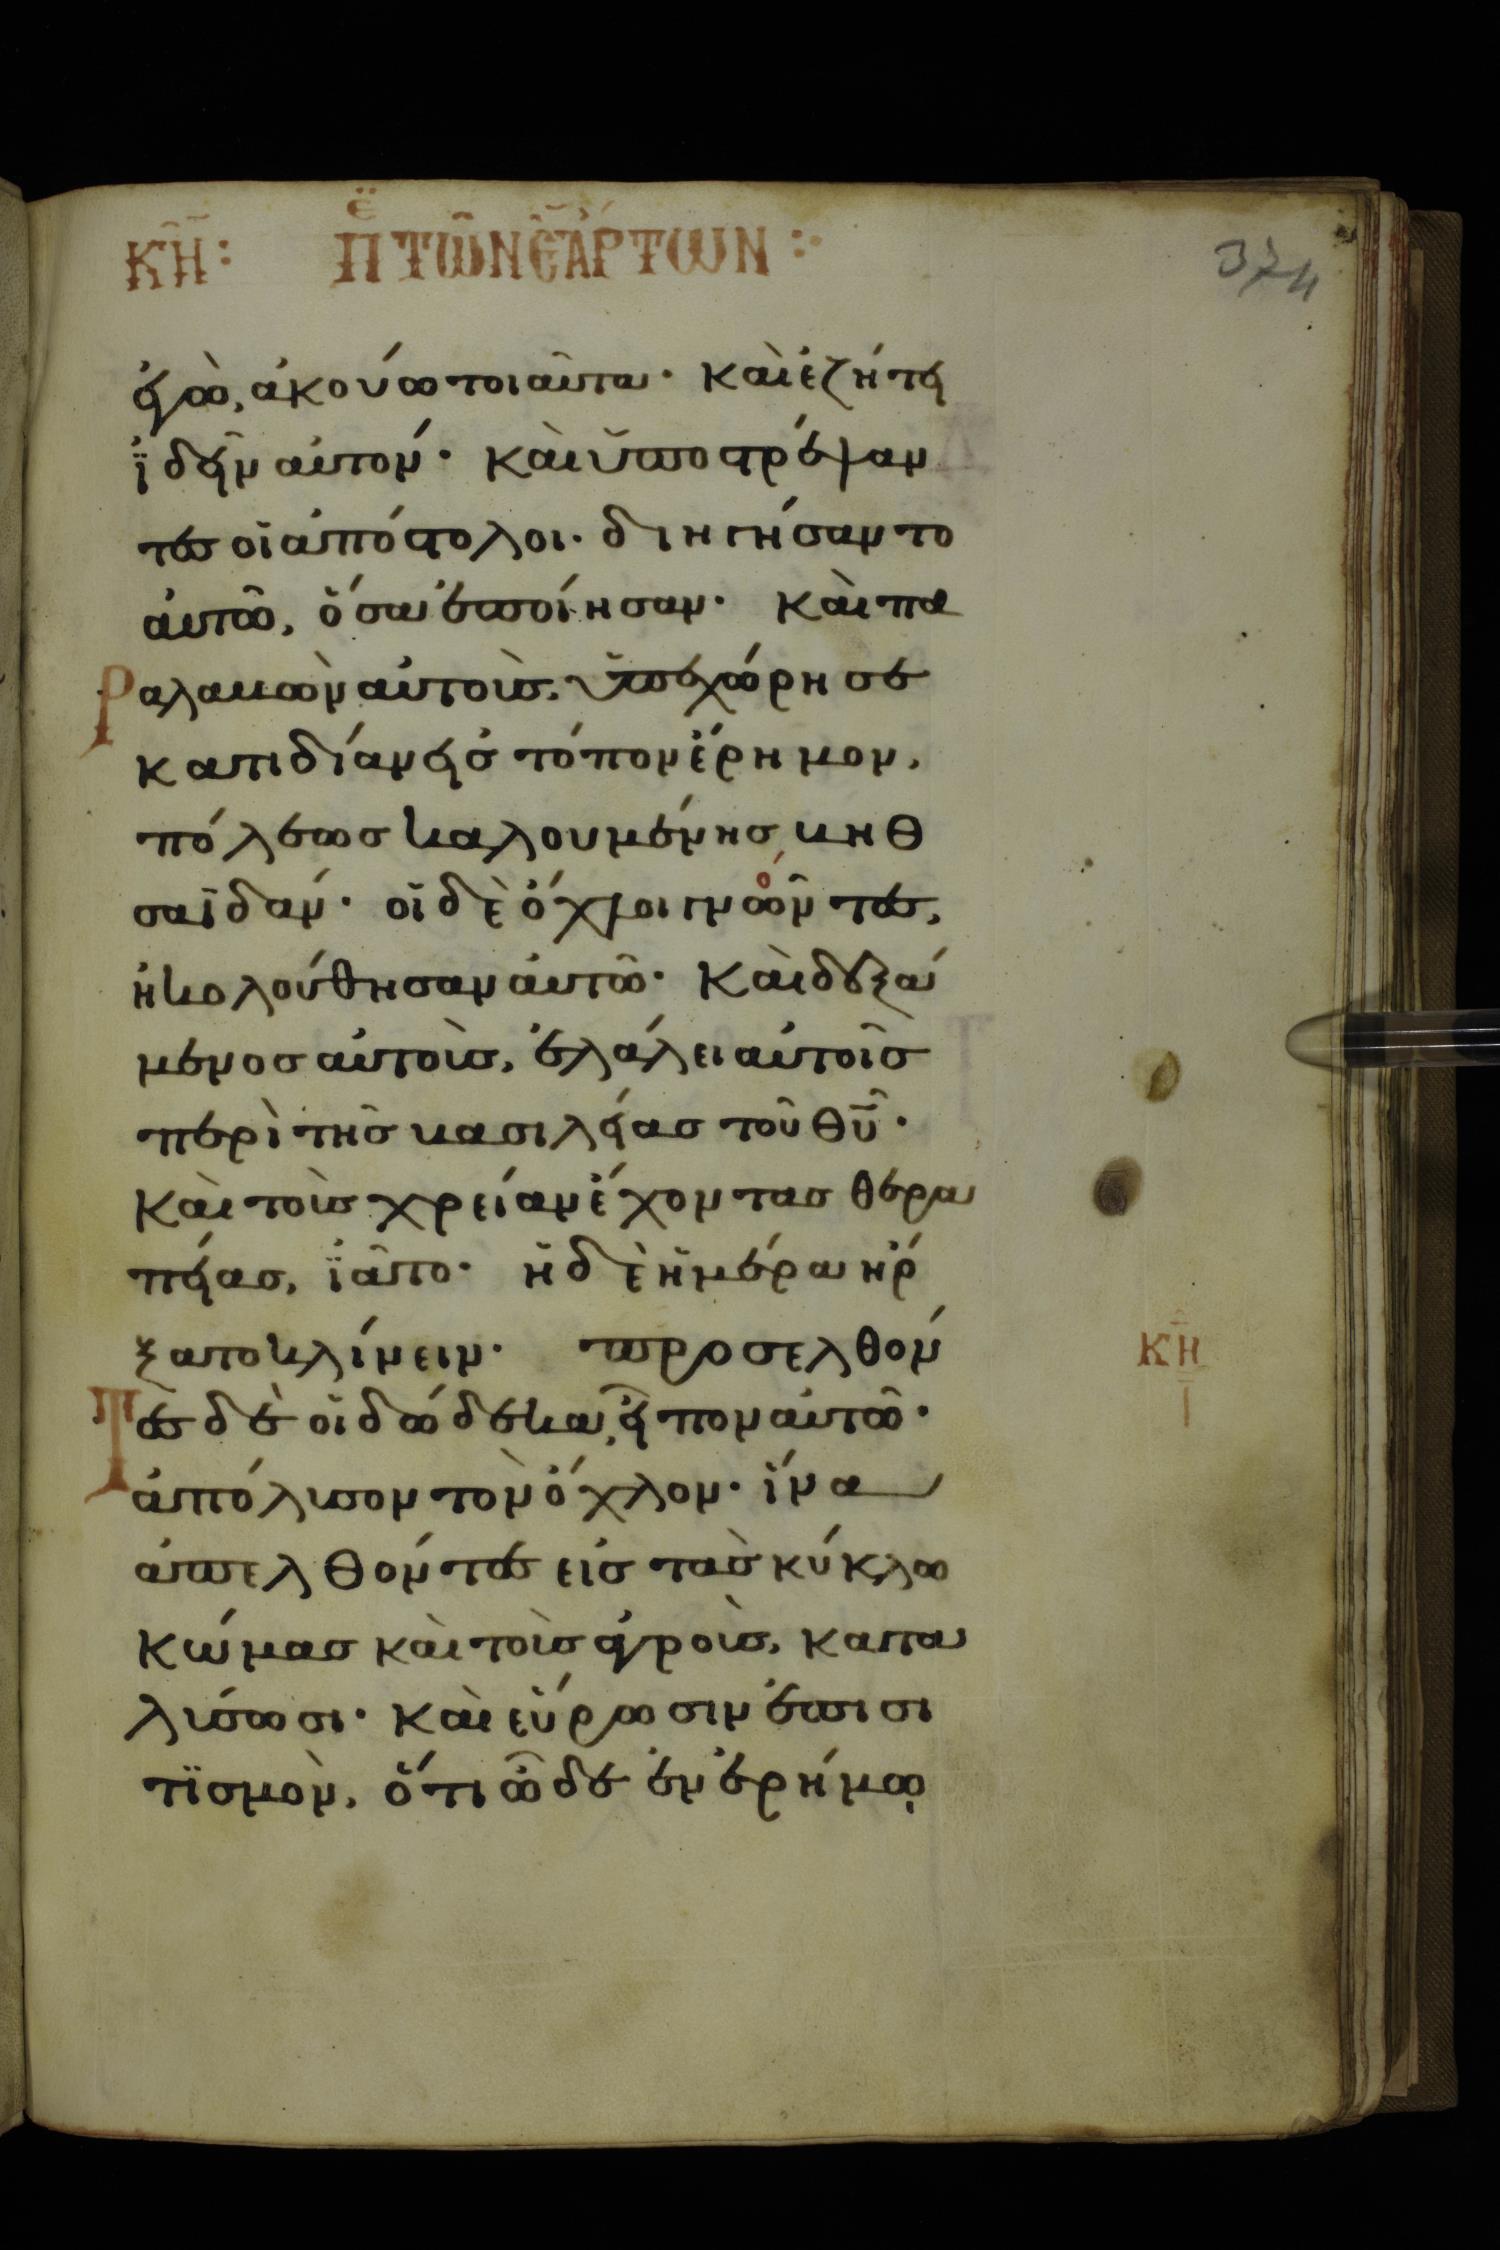 κη: πε των ε αρτων:
374
ἐγὼ, ἀκούω τοιαῦτα· καὶ ἐζήτει
ἰδεῖν αὐτόν· καὶ ὑποστρέψαν
τες οἱ ἀπόστολοι. διηγήσαντο
αὐτῶ, ὅσα ἐποίησαν· καὶ πα
ραλαβὼν αὐτοὺς, ὑπεχώρησε
κατιδίαν εἰς τόπον ἔρημον,
πόλεως καλουμένης βηθ
σαϊδάν· οἱ δὲ ὄχλοι γνῶόντες,
ἠκολούθησαν αὐτῶ· καὶ δεξά
μενος αὐτοὺς, ἐλάλει αὐτοῖς
περὶ τῆς βασιλείας τοῦ θῡ·
καὶ τοὺς χρείαν ἔχοντας θερα
πείας, ἰᾶτο· ἡ δὲ ἡμέρα ἤρ
ξατο κλίνειν· προσελθόν
τες δὲ οἱ δώδεκα, εἶπον αὐτῶ·
κη
ι
ἀπόλυσον τὸν ὄχλον· ἵνα
ἀπελθόντες εἰς τὰς κύκλω
κώμας καὶ τοὺς ἀγροὺς, κατα
λύσωσι· καὶ εὕρωσιν ἐπισι
τϊσμὸν, ὅτι ὧδε ἐν ἐρήμω